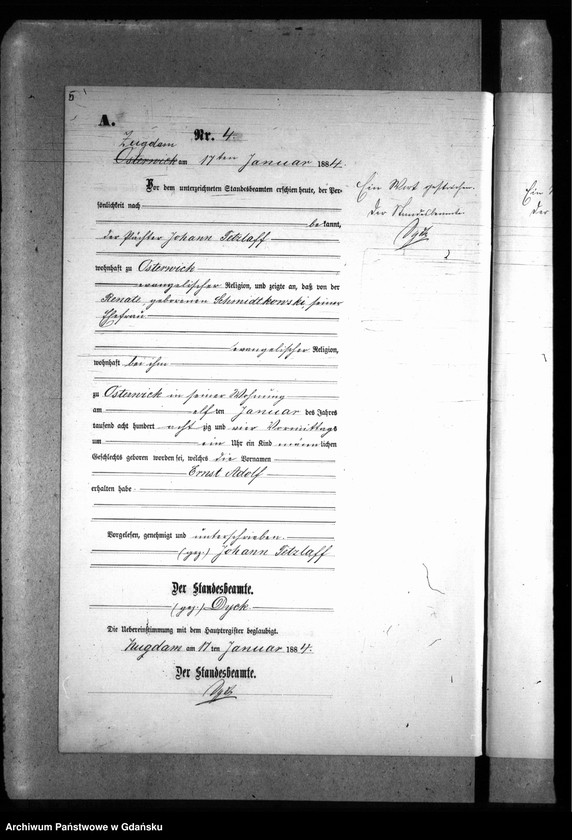 5
A.
Nr. 4.
Zugdam
Osterwick am 17ten Januar 1884.
Vor dem unterzeichneten Standesbeamten erschien heute, der Per-
sönlichkeit nach
bekannt,
der Pächter Johann Tetzlaff
wohnhaft zu Osterwick
evangelischer Religion, und zeigte an, daß von der
Renate, geborenen Schmidtkowski, seiner
Ehefrau
evangelischer Religion,
wohnhaft bei ihm
zu Osterwick in seiner Wohnung
am elf ten Januar des Jahres
tausend acht hundert acht zig und vier Vormittags
um ein Uhr ein Kind männlichen
Geschlechts geboren worden sei, welches die Vornamen
Ernst Adolf
erhalten habe.
Vorgelesen, genehmigt und unterschrieben.
(gez.) Johann Tetzlaff
Der Standesbeamte.
(gez.) Dyck
Die Uebereinstimmung mit dem Hauptregister beglaubigt.
Zugdam am 17 ten Januar 1884.
Der Standesbeamte.
Dyck
Ein Wort gestrichen.
Der Standesbeamte.
Dyck
Ein
der
Archiwum Państwowe w Gdańsku